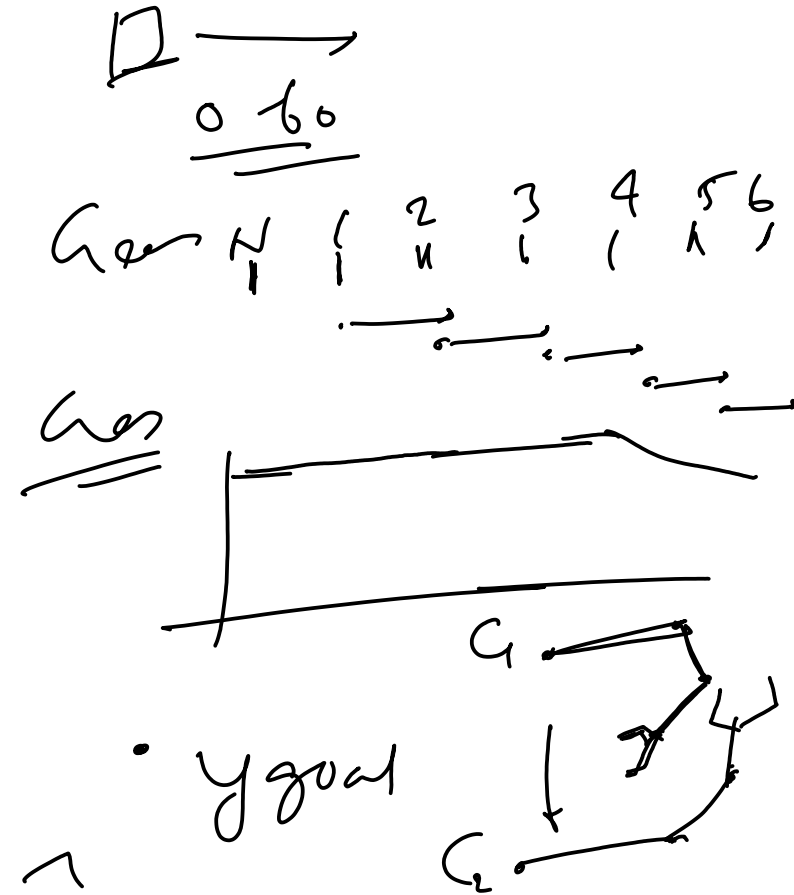 D
0 60
Gear N 1 2 3 4 5 6
Gear
C1
y goal
C2